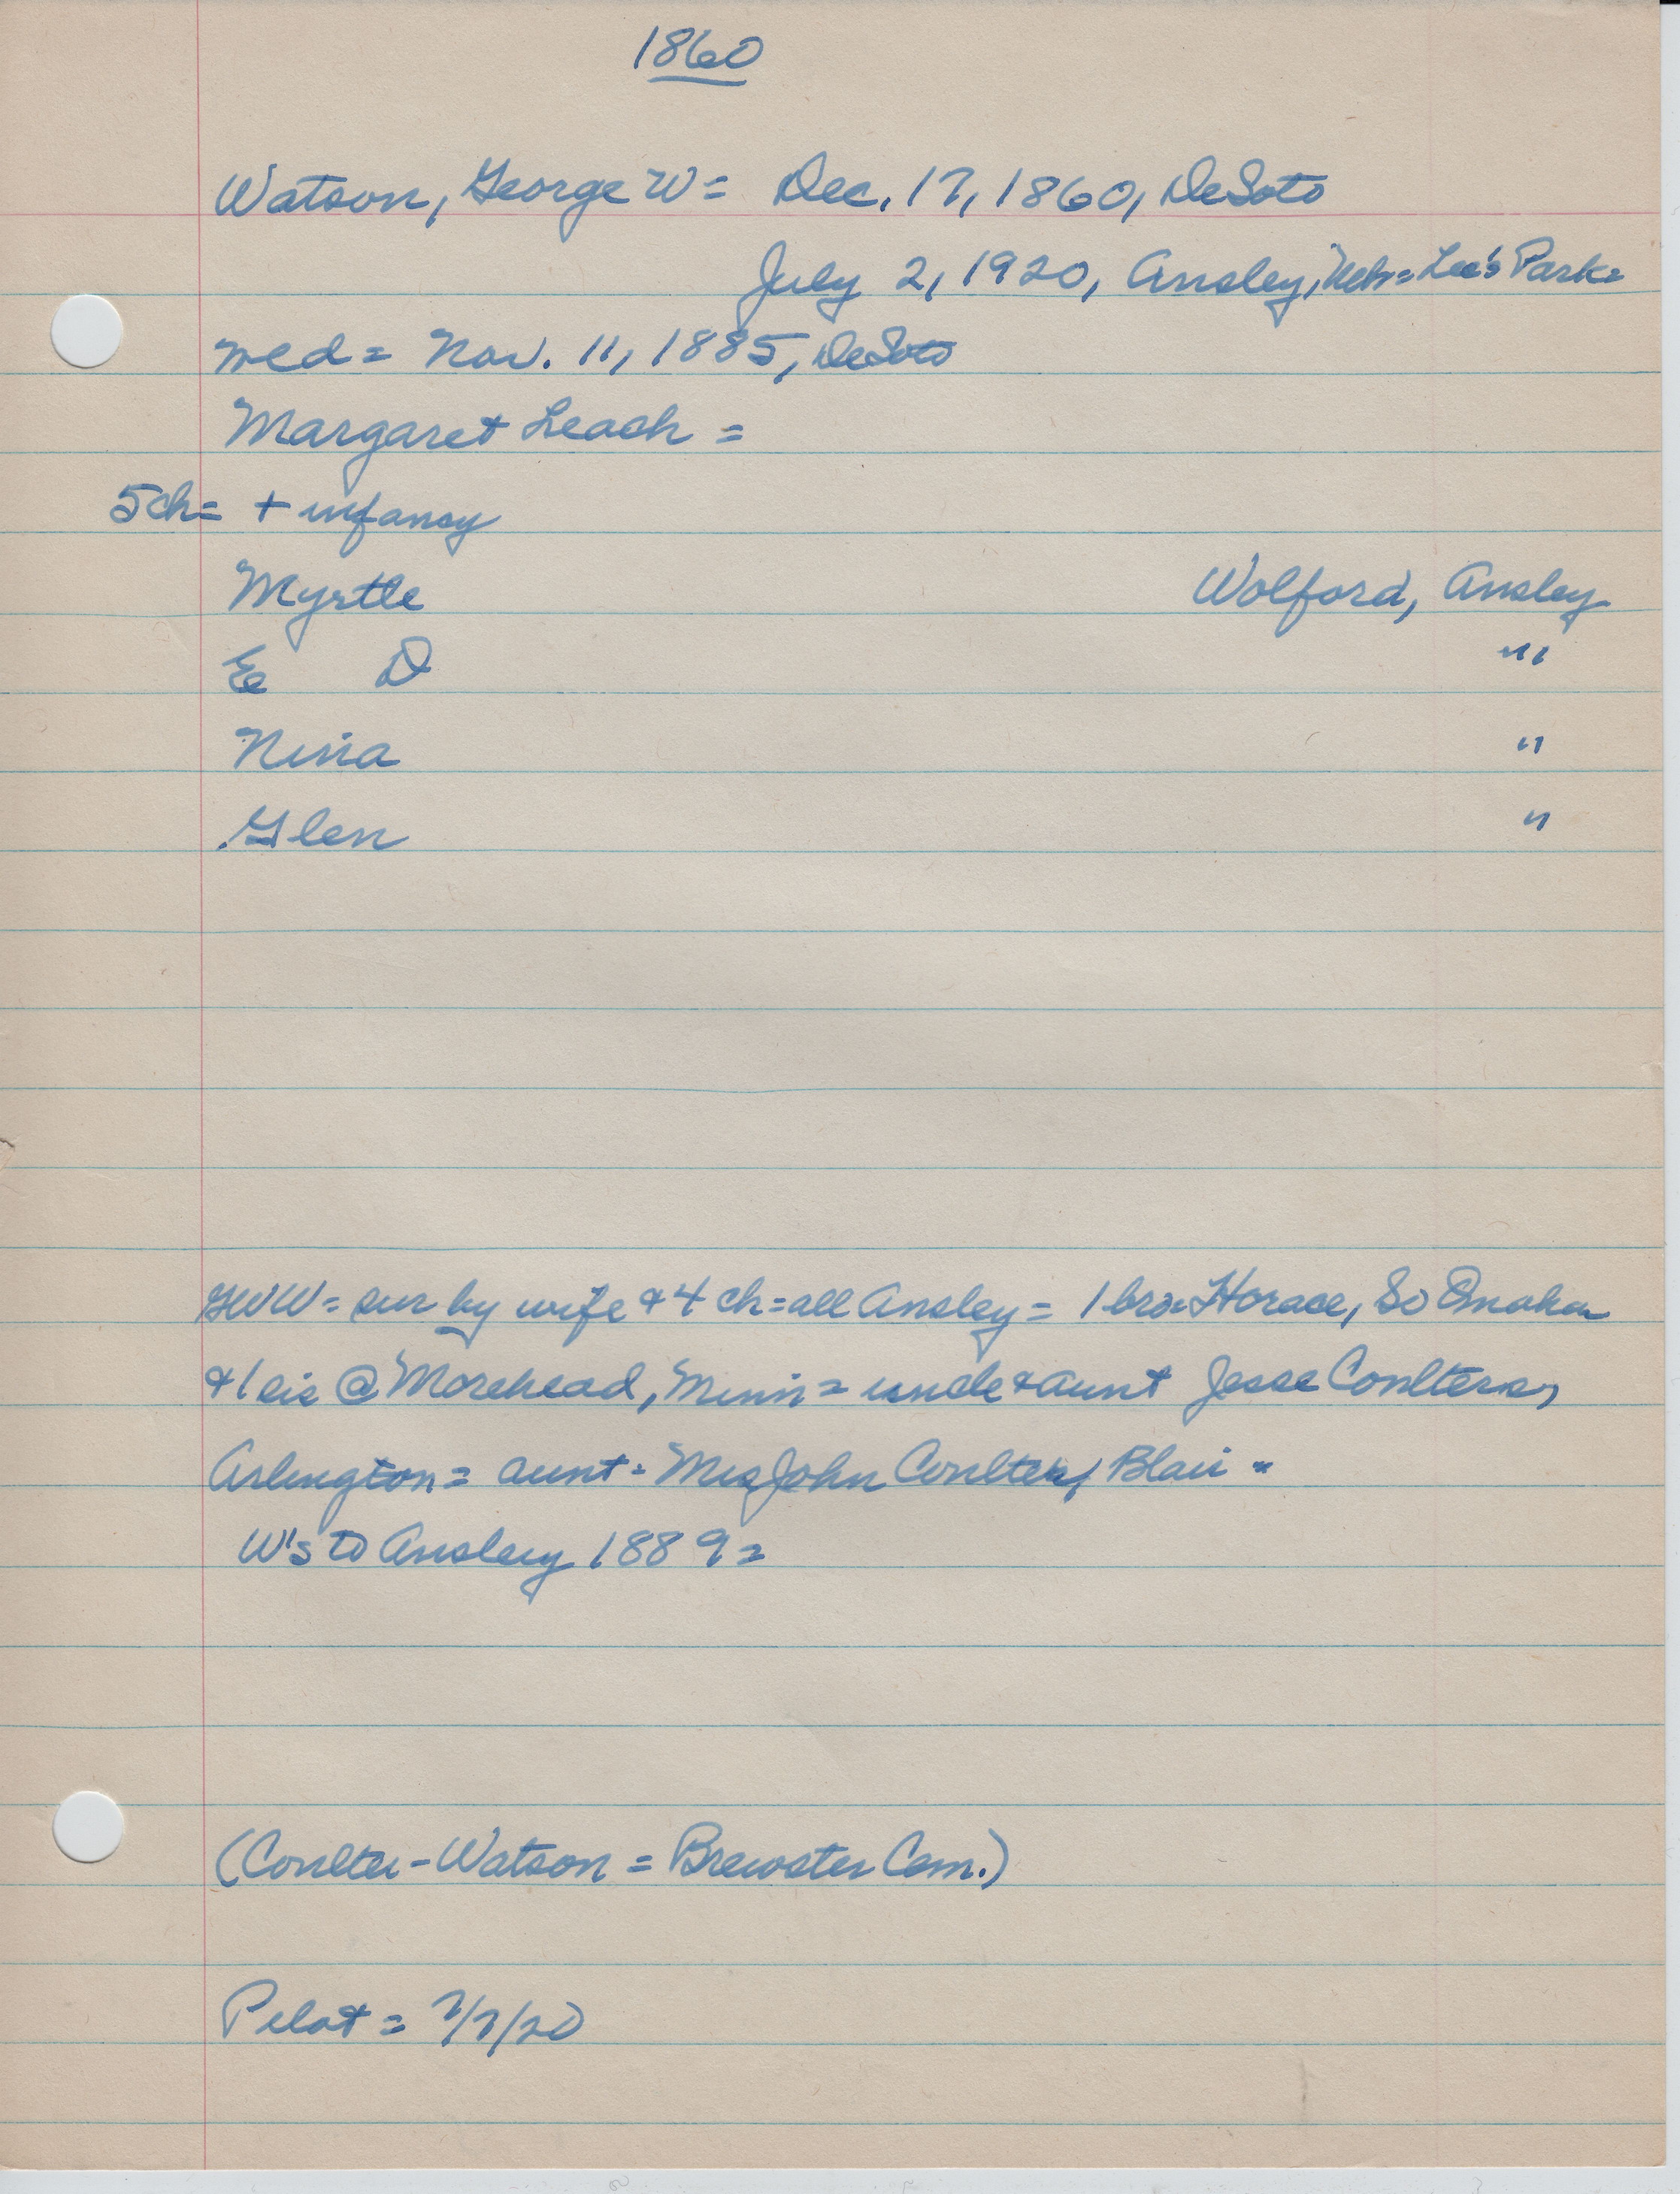 1860
Watson, George W = Dec. 17, 1860, DeSoto
July 2, 1920, Ansley, Neb = Lee's Park =
wed = Nov. 11, 1885, DeSoto
Margaret Leach =
5 ch = + infancy
Myrtle Wolford, Ansley
E D "
Nina "
Glen "
GWW = sur by wife & 4 ch = all Ansley = 1 bro = Horace, So Omaha
& 1 sis @ Morehead, Minn = uncle & aunt Jesse Coulters,
Arlington = aunt = Mrs John Coulter, Blair =
W's to Ansley 1889 =
(Coulter - Watson = Brewster Cem.)
Pilot = 7/7/20